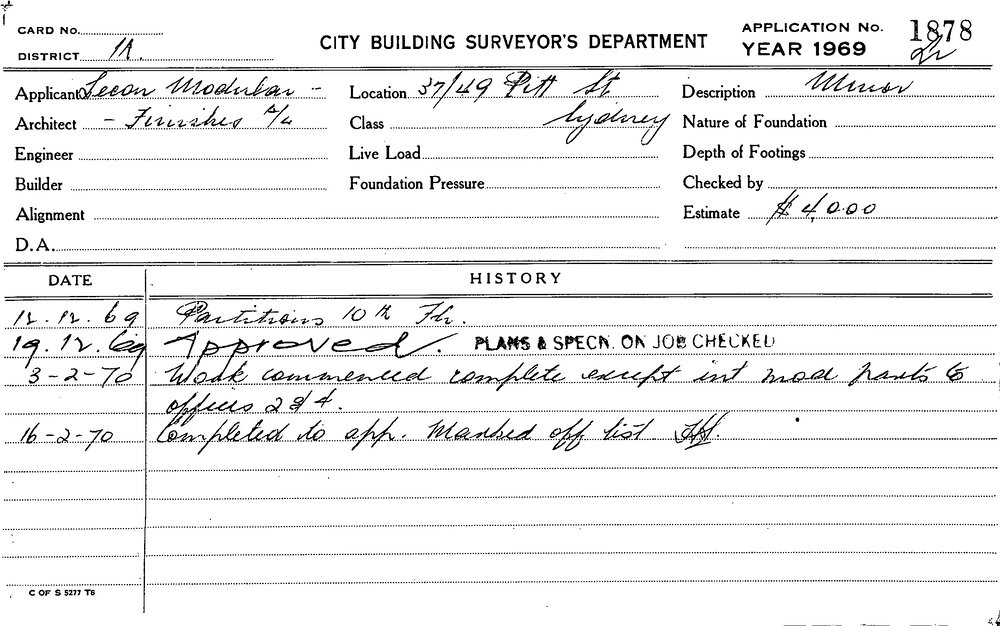 CARD No.
DISTRICT 1A.
CITY BUILDING SURVEYOR'S DEPARTMENT
APPLICATION No. 1878
YEAR 1969
Applicant Modular -
Architect - Finishes
Engineer
Builder
Alignment
D.A.
Location 37/49 Pitt St
Class Sydney
Live Load
Foundation Pressure
Description Minor
Nature of Foundation
Depth of Footings
Checked by
Estimate $ 4,000
DATE HISTORY
12.12.69 Partitions 10th Flr.
19.12.69 Approved. PLANS & SPECN. ON JOB CHECKED
3-2-70 Work commenced complete except int mod parts to
offices 2 & 4.
16-2-70 Completed to app. Marked off list.
C OF S 5277 T6